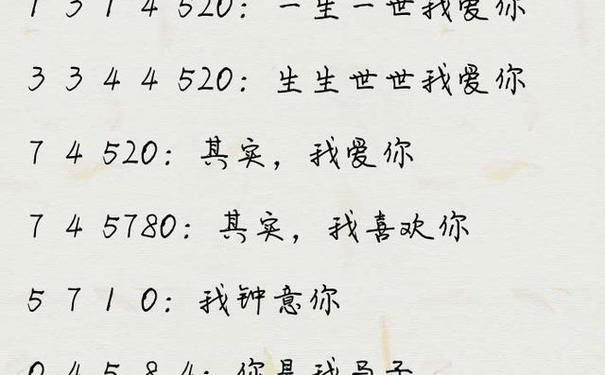 1 3 1 4 520：一生一世我爱你
3 3 4 4 520：生生世世我爱你
7 4 520：其实，我爱你
7 4 5780：其实，我喜欢你
5 7 1 0：我钟意你
0 4 5 8 4：你是我